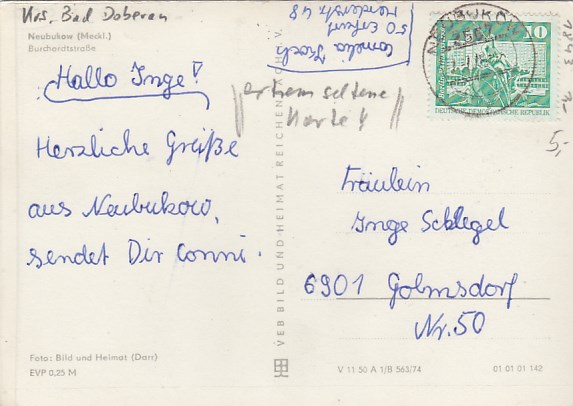 Krs. Bad Doberan
Neubukow (Meckl.)
Burchardtstraße
Hallo Inge!
Herzliche Grüße
aus Neubukow,
sendet Dir Conni.
Foto: Bild und Heimat (Darr)
EVP 0,25 M
VEB BILD UND HEIMAT REICHENBACH I. V.
50 Erfurt
extrem seltene
Karte!
NEUBUKOW
10
DEUTSCHE DEMOKRATISCHE REPUBLIK
1,-
5,-
Fräulein
Inge Schlegel
6901 Golmsdorf
Nr. 50
V 11 50 A 1/B 563/74
01 01 01 142